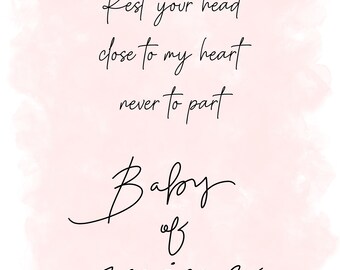 Rest your head
close to my heart
never to part
Baby
of